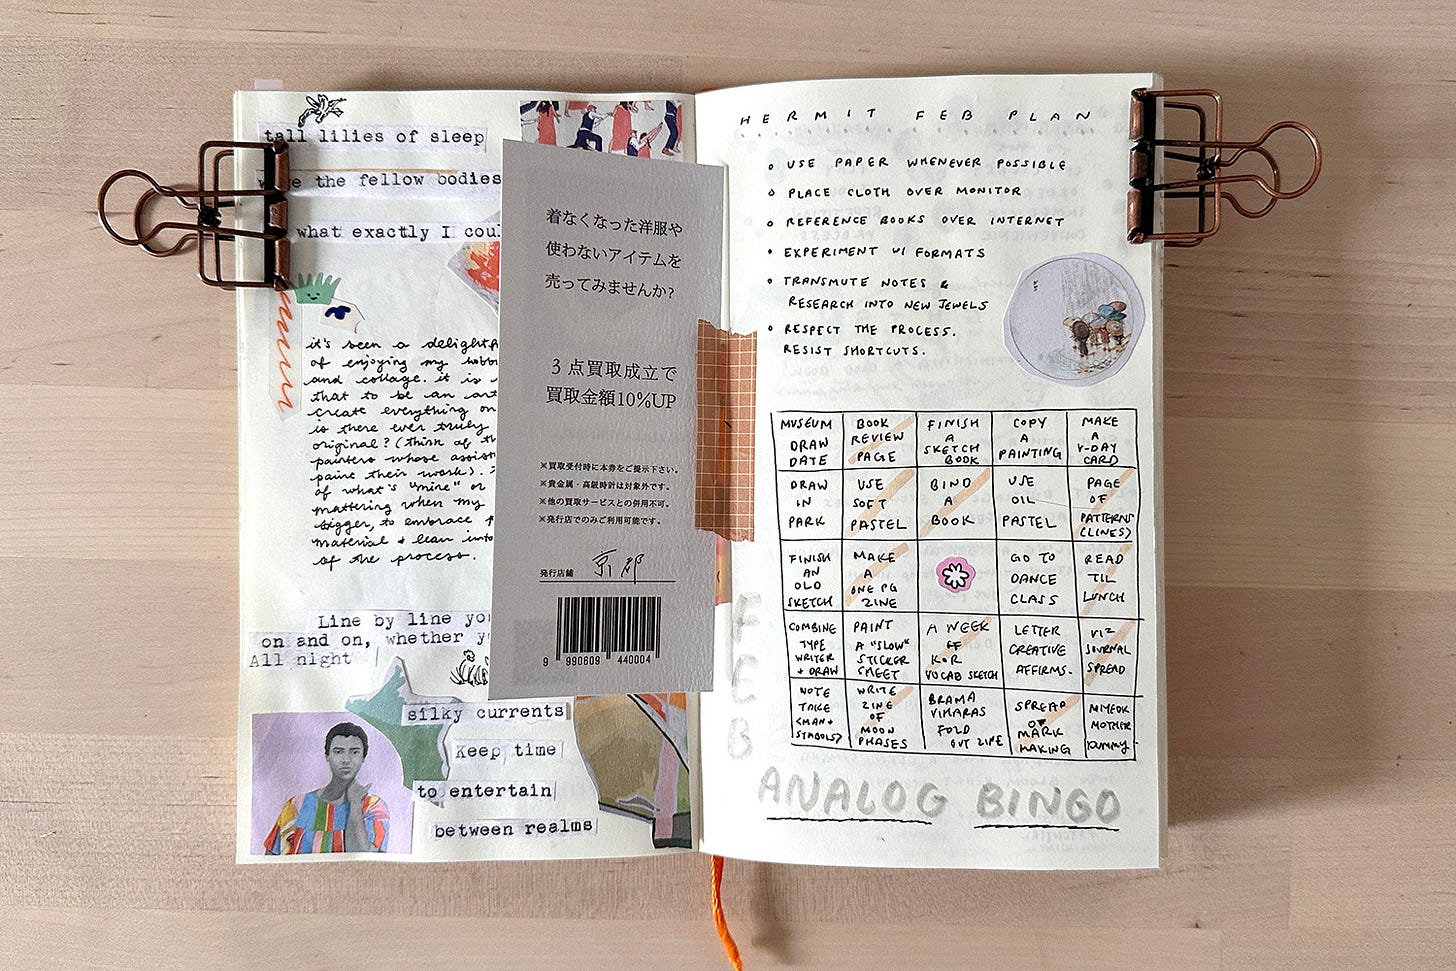 tall lilies of sleep
the fellow bodies
what exactly I
it's been a
of enjoying my
and collage. it is
that to be an
create everything
is there ever truly
original? (think of
painters whose
paint their work).
of what's "mine" or
mattering when my
bigger, to embrace
material & lean
of the process.
Line by line
on and on, whether
All night
silky currents
Keep time
to entertain
between realms
着なくなった洋服や
使わないアイテムを
売ってみませんか?
3点買取成立で
買取金額10%UP
※買取受付時に本券をご提示下さい。
※貴金属・高級時計は対象外です。
※他の買取サービスとの併用不可。
※発行店でのみご利用可能です。
発行店舗 京都
9 990609 440004
FEB
HERMIT FEB PLAN
USE PAPER WHENEVER POSSIBLE
PLACE CLOTH OVER MONITOR
REFERENCE BOOKS OVER INTERNET
EXPERIMENT W/ FORMATS
TRANSMUTE NOTES &
RESEARCH INTO NEW JEWELS
RESPECT THE PROCESS.
RESIST SHORTCUTS.
MUSEUM
DRAW
DATE
BOOK
REVIEW
PAGE
FINISH
A
SKETCH
BOOK
COPY
A
PAINTING
MAKE
A
V-DAY
CARD
DRAW
IN
PARK
USE
SOFT
PASTEL
BIND
A
BOOK
USE
OIL
PASTEL
PAGE
OF
PATTERNS
(LINES)
FINISH
AN
OLD
SKETCH
MAKE
A
ONE PG
ZINE
GO TO
DANCE
CLASS
READ
TIL
LUNCH
COMBINE
TYPE
WRITER
+ DRAW
PAINT
A "SLOW"
STICKER
SHEET
A WEEK
OF
KOR
VOCAB SKETCH
LETTER
CREATIVE
AFFIRMS.
VIZ
JOURNAL
SPREAD
NOTE
TAKE
(MAN+
SYMBOLS)
WRITE
ZINE
OF
MOON
PHASES
BRAMA
VIHARAS
FOLD
OUT ZINE
SPREAD
OF
MARK
MAKING
MOTHER
DUMMY
ANALOG BINGO